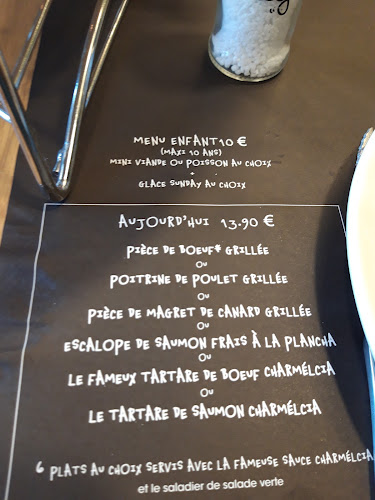 MENU ENFANT 10 €
(MAXI 10 ANS)
MINI VIANDE OU POISSON AU CHOIX
+
GLACE SUNDAY AU CHOIX
AUJOURD'HUI 13.90 €
PIÈCE DE BOEUF* GRILLÉE
OU
POITRINE DE POULET GRILLÉE
OU
PIÈCE DE MAGRET DE CANARD GRILLÉE
OU
ESCALOPE DE SAUMON FRAIS À LA PLANCHA
OU
LE FAMEUX TARTARE DE BOEUF CHARMÉLCIA
OU
LE TARTARE DE SAUMON CHARMÉLCIA
6 PLATS AU CHOIX SERVIS AVEC LA FAMEUSE SAUCE CHARMÉLCIA
et le saladier de salade verte